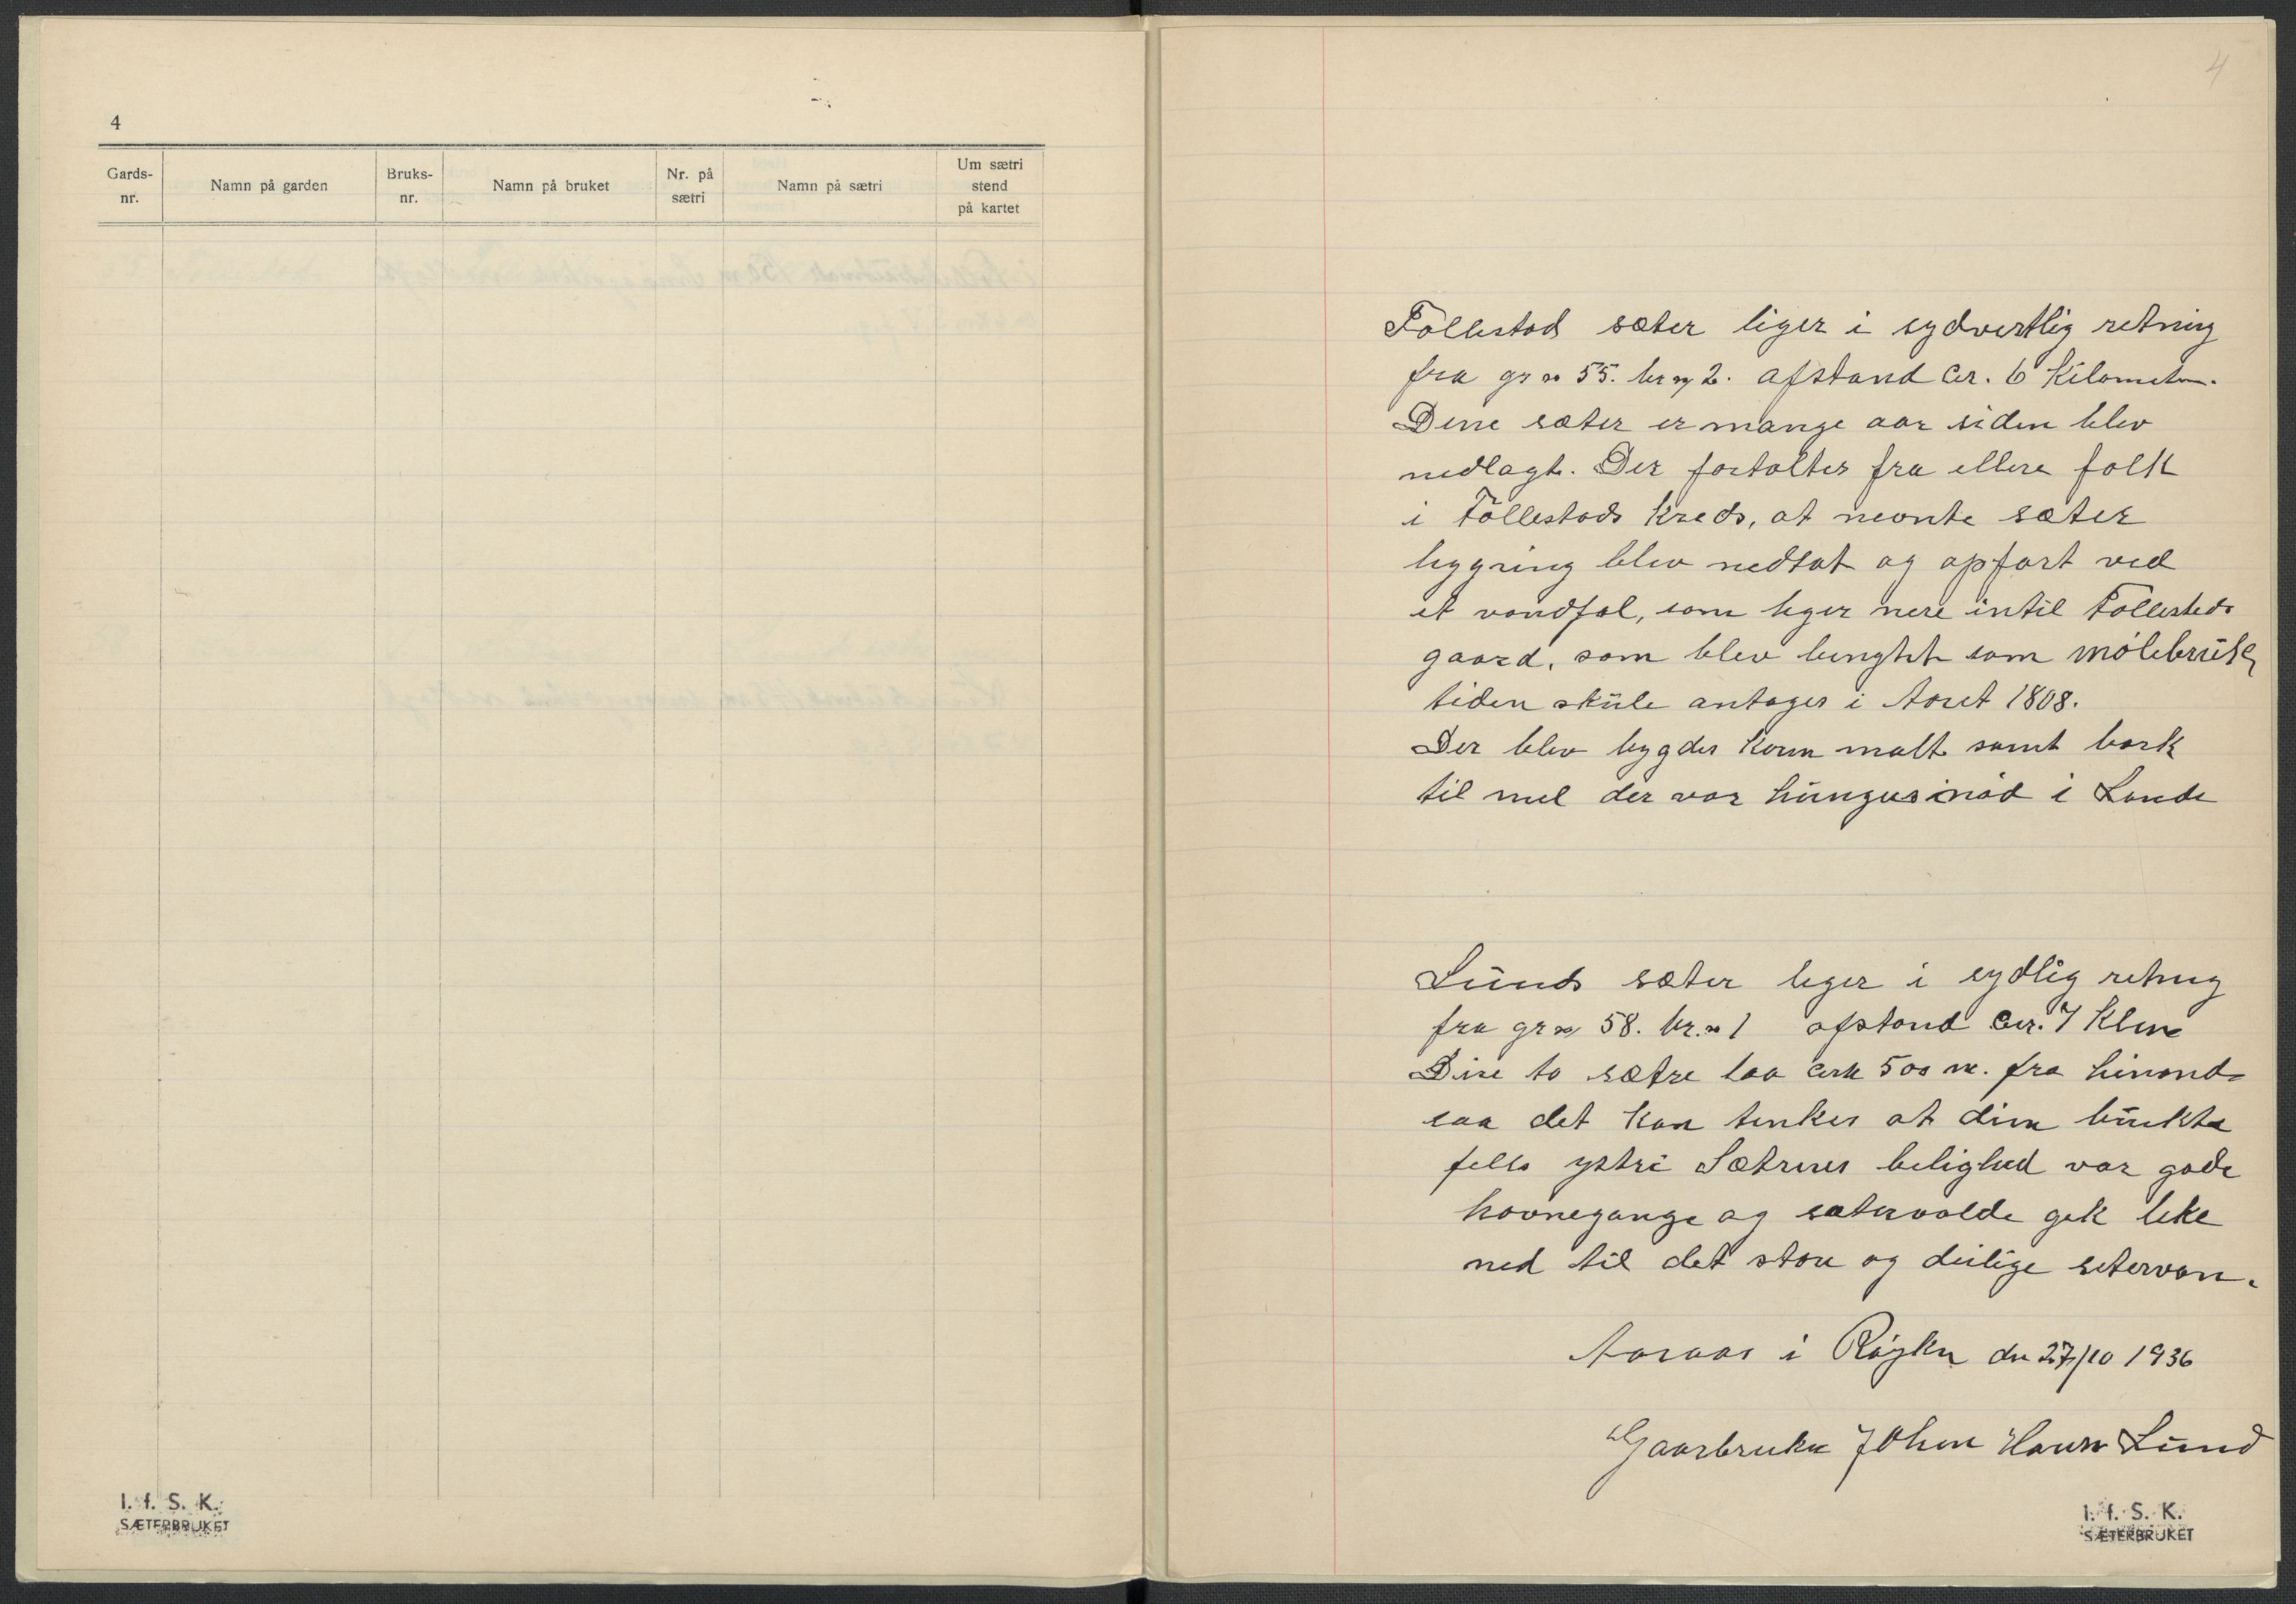 4
Gards-
nr.
Namn på garden
Bruks-
nr.
Namn på bruket
Nr. på
sætri
Namn på sætri
Um sætri
stend
på kartet
I. f. S. K.
SÆTERBRUKET
4
Föllestad sæter liger i sydvestlig retning
fra gr no 55. br no 2. afstand cir. 6 Kilometer.
Dene sæter er mange aar siden blev
nedlagt. Der fortaltes fra ellere folk
i Föllestads Kreds, at nevnte sæter
bygning blev nedtat og opført ved
et vandfal, som liger nere intil Föllestads
gaard, som blev benyttet som mölebrük,
tiden sküle antages i Aaret 1808.
Der blev bygder korn malt samt bark
til mel der var hüngersnöd i Lande
Lünds sæter liger i sydlig retning
fra gr no 58. br. no 1 afstand cir. 7 Klm
Dise to sætre laa cirk 500 m. fra hinand
saa det kan tenkes at dem brükte
fells ystri Sætrenes belighed var gode
havnegange og sætervolde gik like
ned til det store og deilige setervan.
Aaraas i Røyken den 27/10 1936
Gaarbruker Johan Hansn Lünd
I. f. S. K.
SÆTERBRUKET